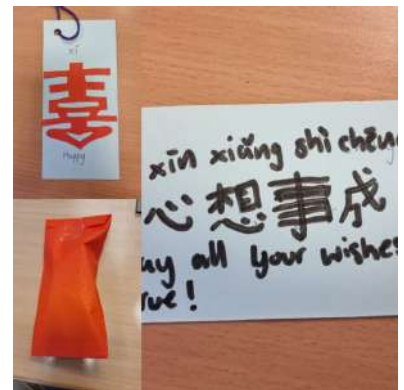 xǐ
喜
Happy
xīn xiǎng shì chéng
心想事成
ay all your wishes
rue!